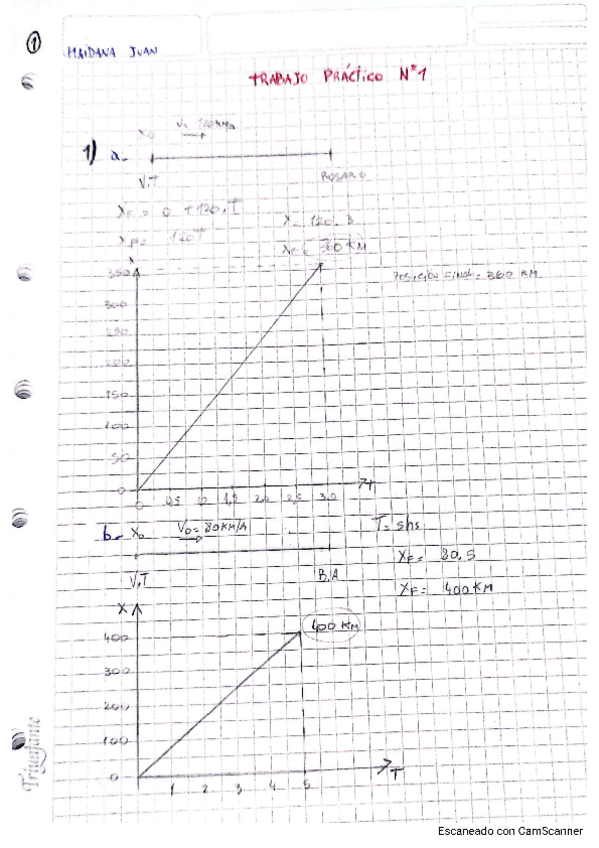 1
MAIDANA JUAN
TRABAJO PRÁCTICO N°1
X₀
1) a-
V.T ROSARIO
X_F = 0 + 120.T
X = 120. 3
120T
360 KM
X
POSICION FINAL = 360 KM
350
300
250
200
150
100
50
0
T
0 0,5 1,0 1,5 2,0 2,5 3,0
b- X₀ V₀ = 80KM/H T= 5hs
X_F = 80.5
V.T B.A
X_F = 400KM
X
400 KM
400
300
200
100
0
T
1 2 3 4 5
Triunfante
Escaneado con CamScanner